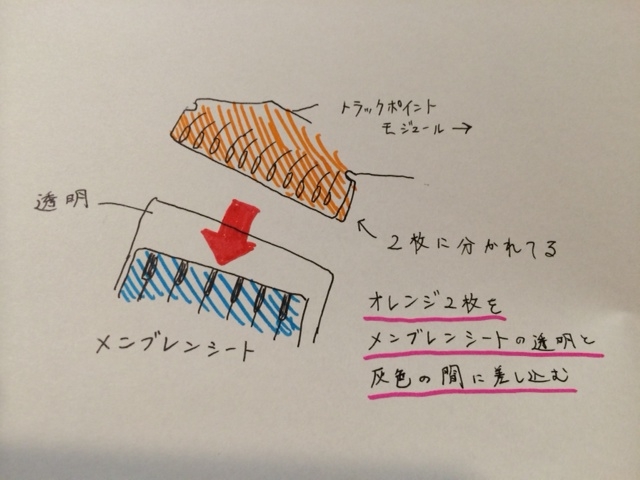 トラックポイント
モジュール→
透明
2枚に分かれてる
オレンジ2枚を
メンブレンシートの透明と
灰色の間に差し込む
メンブレンシート